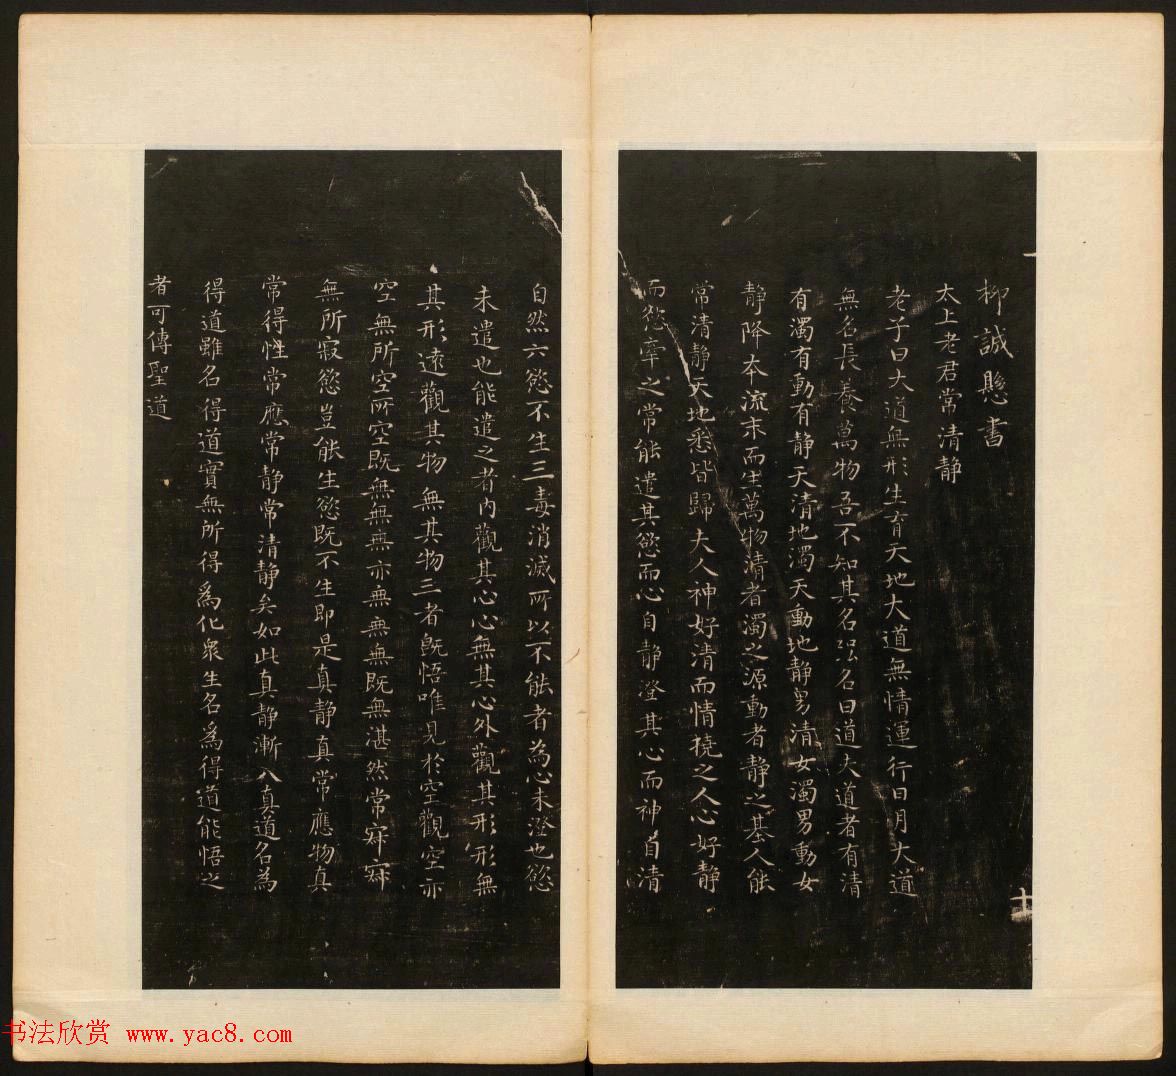 柳誠懸書
太上老君常清静
老子曰大道無形生育天地大道無情運行日月大道
無名長養萬物吾不知其名强名曰道夫道者有清
有濁有動有静天清地濁天動地静男清女濁男動女
静降本流末而生萬物清者濁之源動者静之基人能
常清静天地悉皆歸夫人神好清而情撓之人心好静
而慾牽之常能遣其慾而心自静澄其心而神自清
自然六慾不生三毒消滅所以不能者為心未澄也慾
未遣也能遣之者内觀其心心無其心外觀其形形無
其形遠觀其物無其物三者既悟唯見於空觀空亦
空無所空所空既無無無亦無無無既無湛然常寂寂
無所寂慾豈能生慾既不生即是真静真常應物真
常得性常應常静常清静矣如此真静漸入真道名為
得道雖名得道實無所得為化衆生名為得道能悟之
者可傳聖道
书法欣赏 www.yac8.com